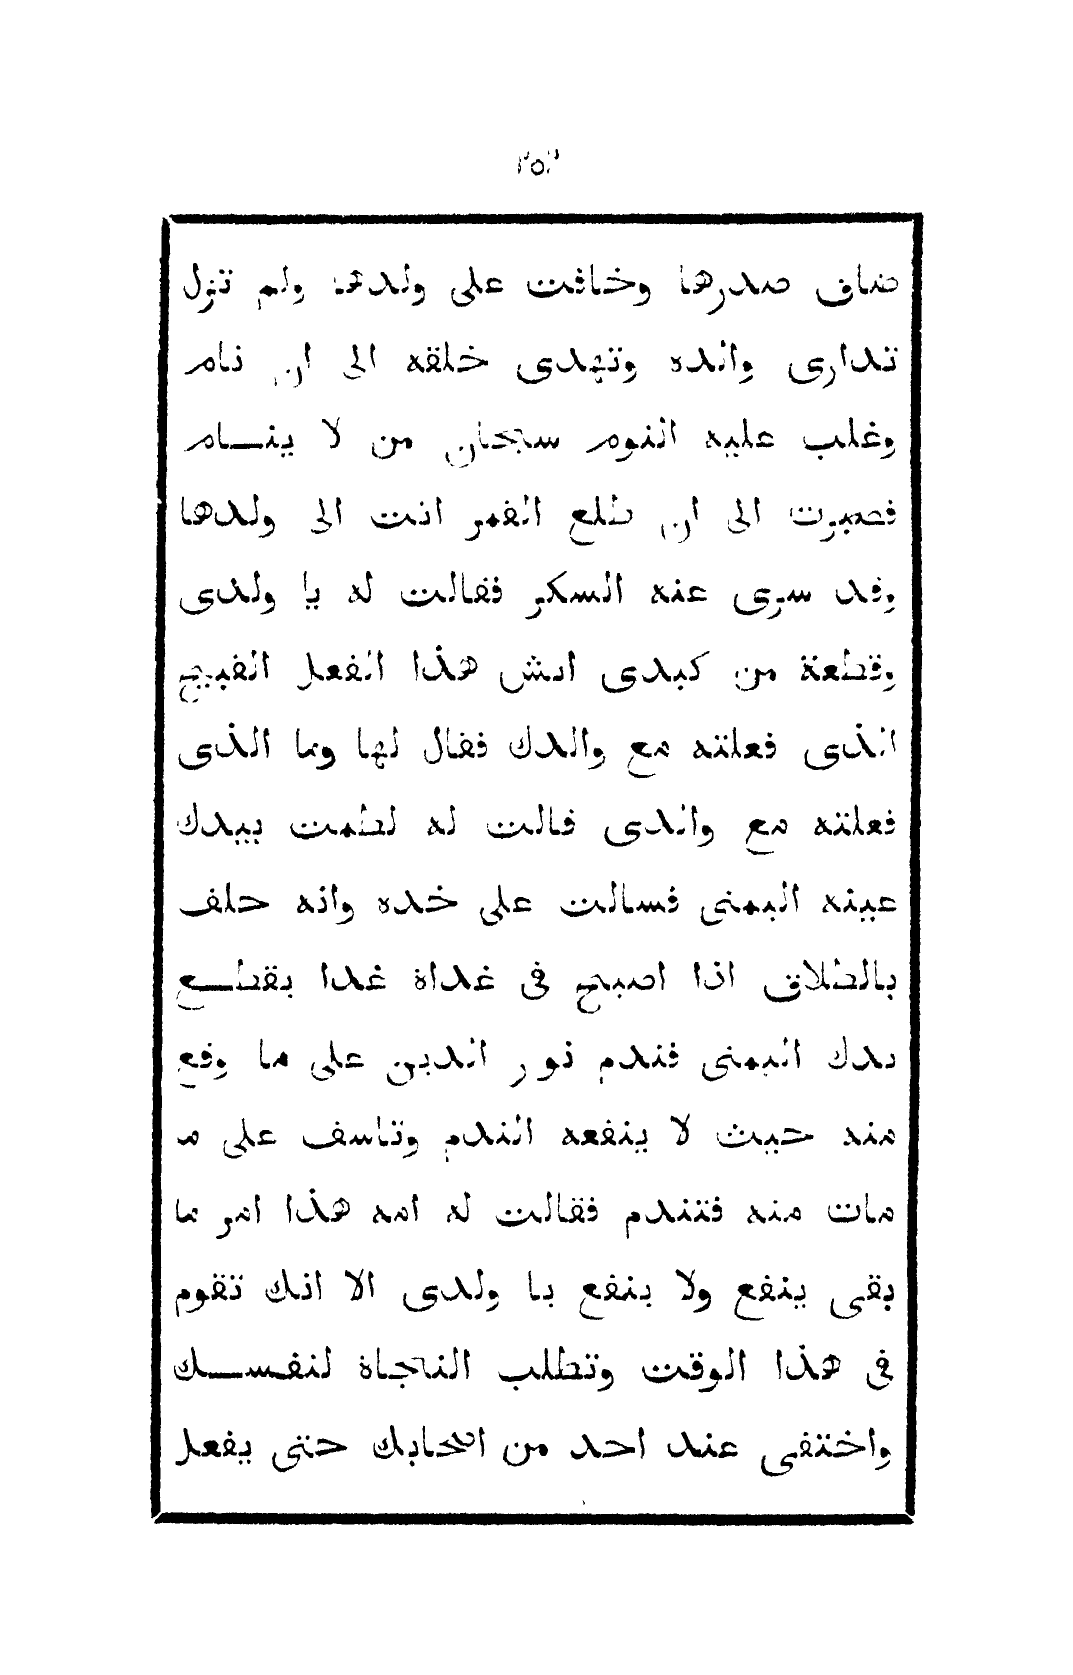 ضاق صدرها وخافت على ولدها ولم تزل
تدارى والده وتهدى خلقه الى ان نام
وغلب عليه النوم سبحان من لا ينـــام
فصبرت الى ان طلع القمر اتت الى ولدها
وقد سرى عنه السكر فقالت له يا ولدى
وقطعة من كبدى ايش هذا الفعل القبيح
الذى فعلته مع والدك فقال لها وما الذى
فعلته مع والدى قالت له لطمت بيدك
عينه اليمنى فسالت على خده وانه حلف
بالطلاق اذا اصبح فى غداة غدا يقطـــع
يدك اليمنى فندم نور الدين على ما وقع
منه حيث لا ينفعه الندم وتاسف على م
مات منه فتندم فقالت له امه هذا امر ما
بقى ينفع ولا ينفع يا ولدى الا انك تقوم
فى هذا الوقت وتطلب النجاة لنفســـك
واختفى عند احد من اصحابك حتى يفعل